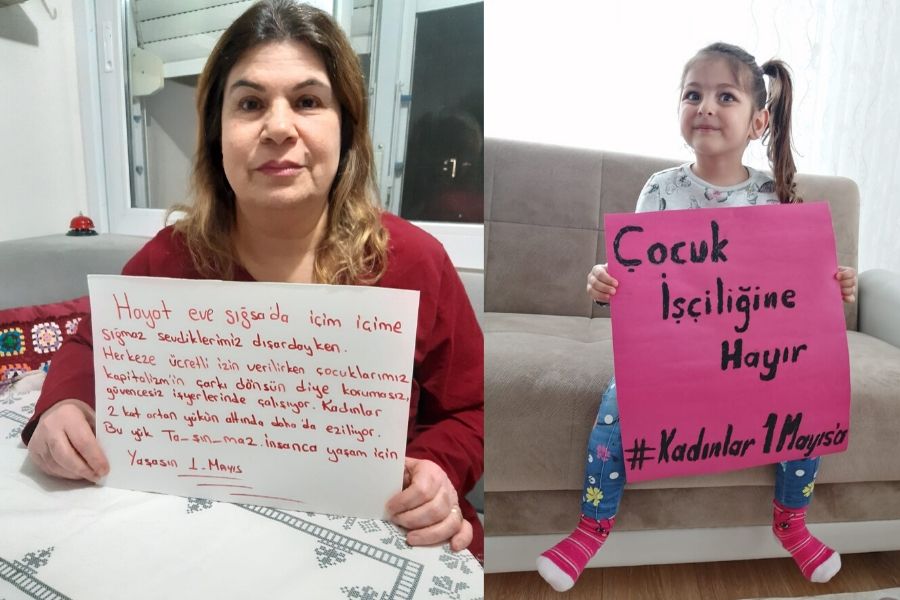 Hayat eve sığsa'da içim içime
sığmaz sevdiklerimiz dışardayken.
Herkeze ücretli izin verilirken çocuklarımız
kapitalizm'in çarkı dönsün diye korumasız,
güvencesiz işyerlerinde çalışıyor. Kadınlar
2 kat artan yükün altında daha'da eziliyor.
Bu yük Ta-şın-maz. İnsanca yaşam için
Yaşasın 1. Mayıs
Çocuk
İşçiliğine
Hayır
#Kadınlar 1 Mayıs'a